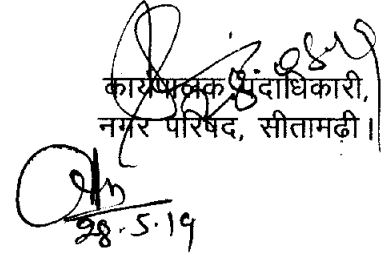 कार्यपालक पदाधिकारी,
नगर परिषद, सीतामढ़ी।
28.5.19